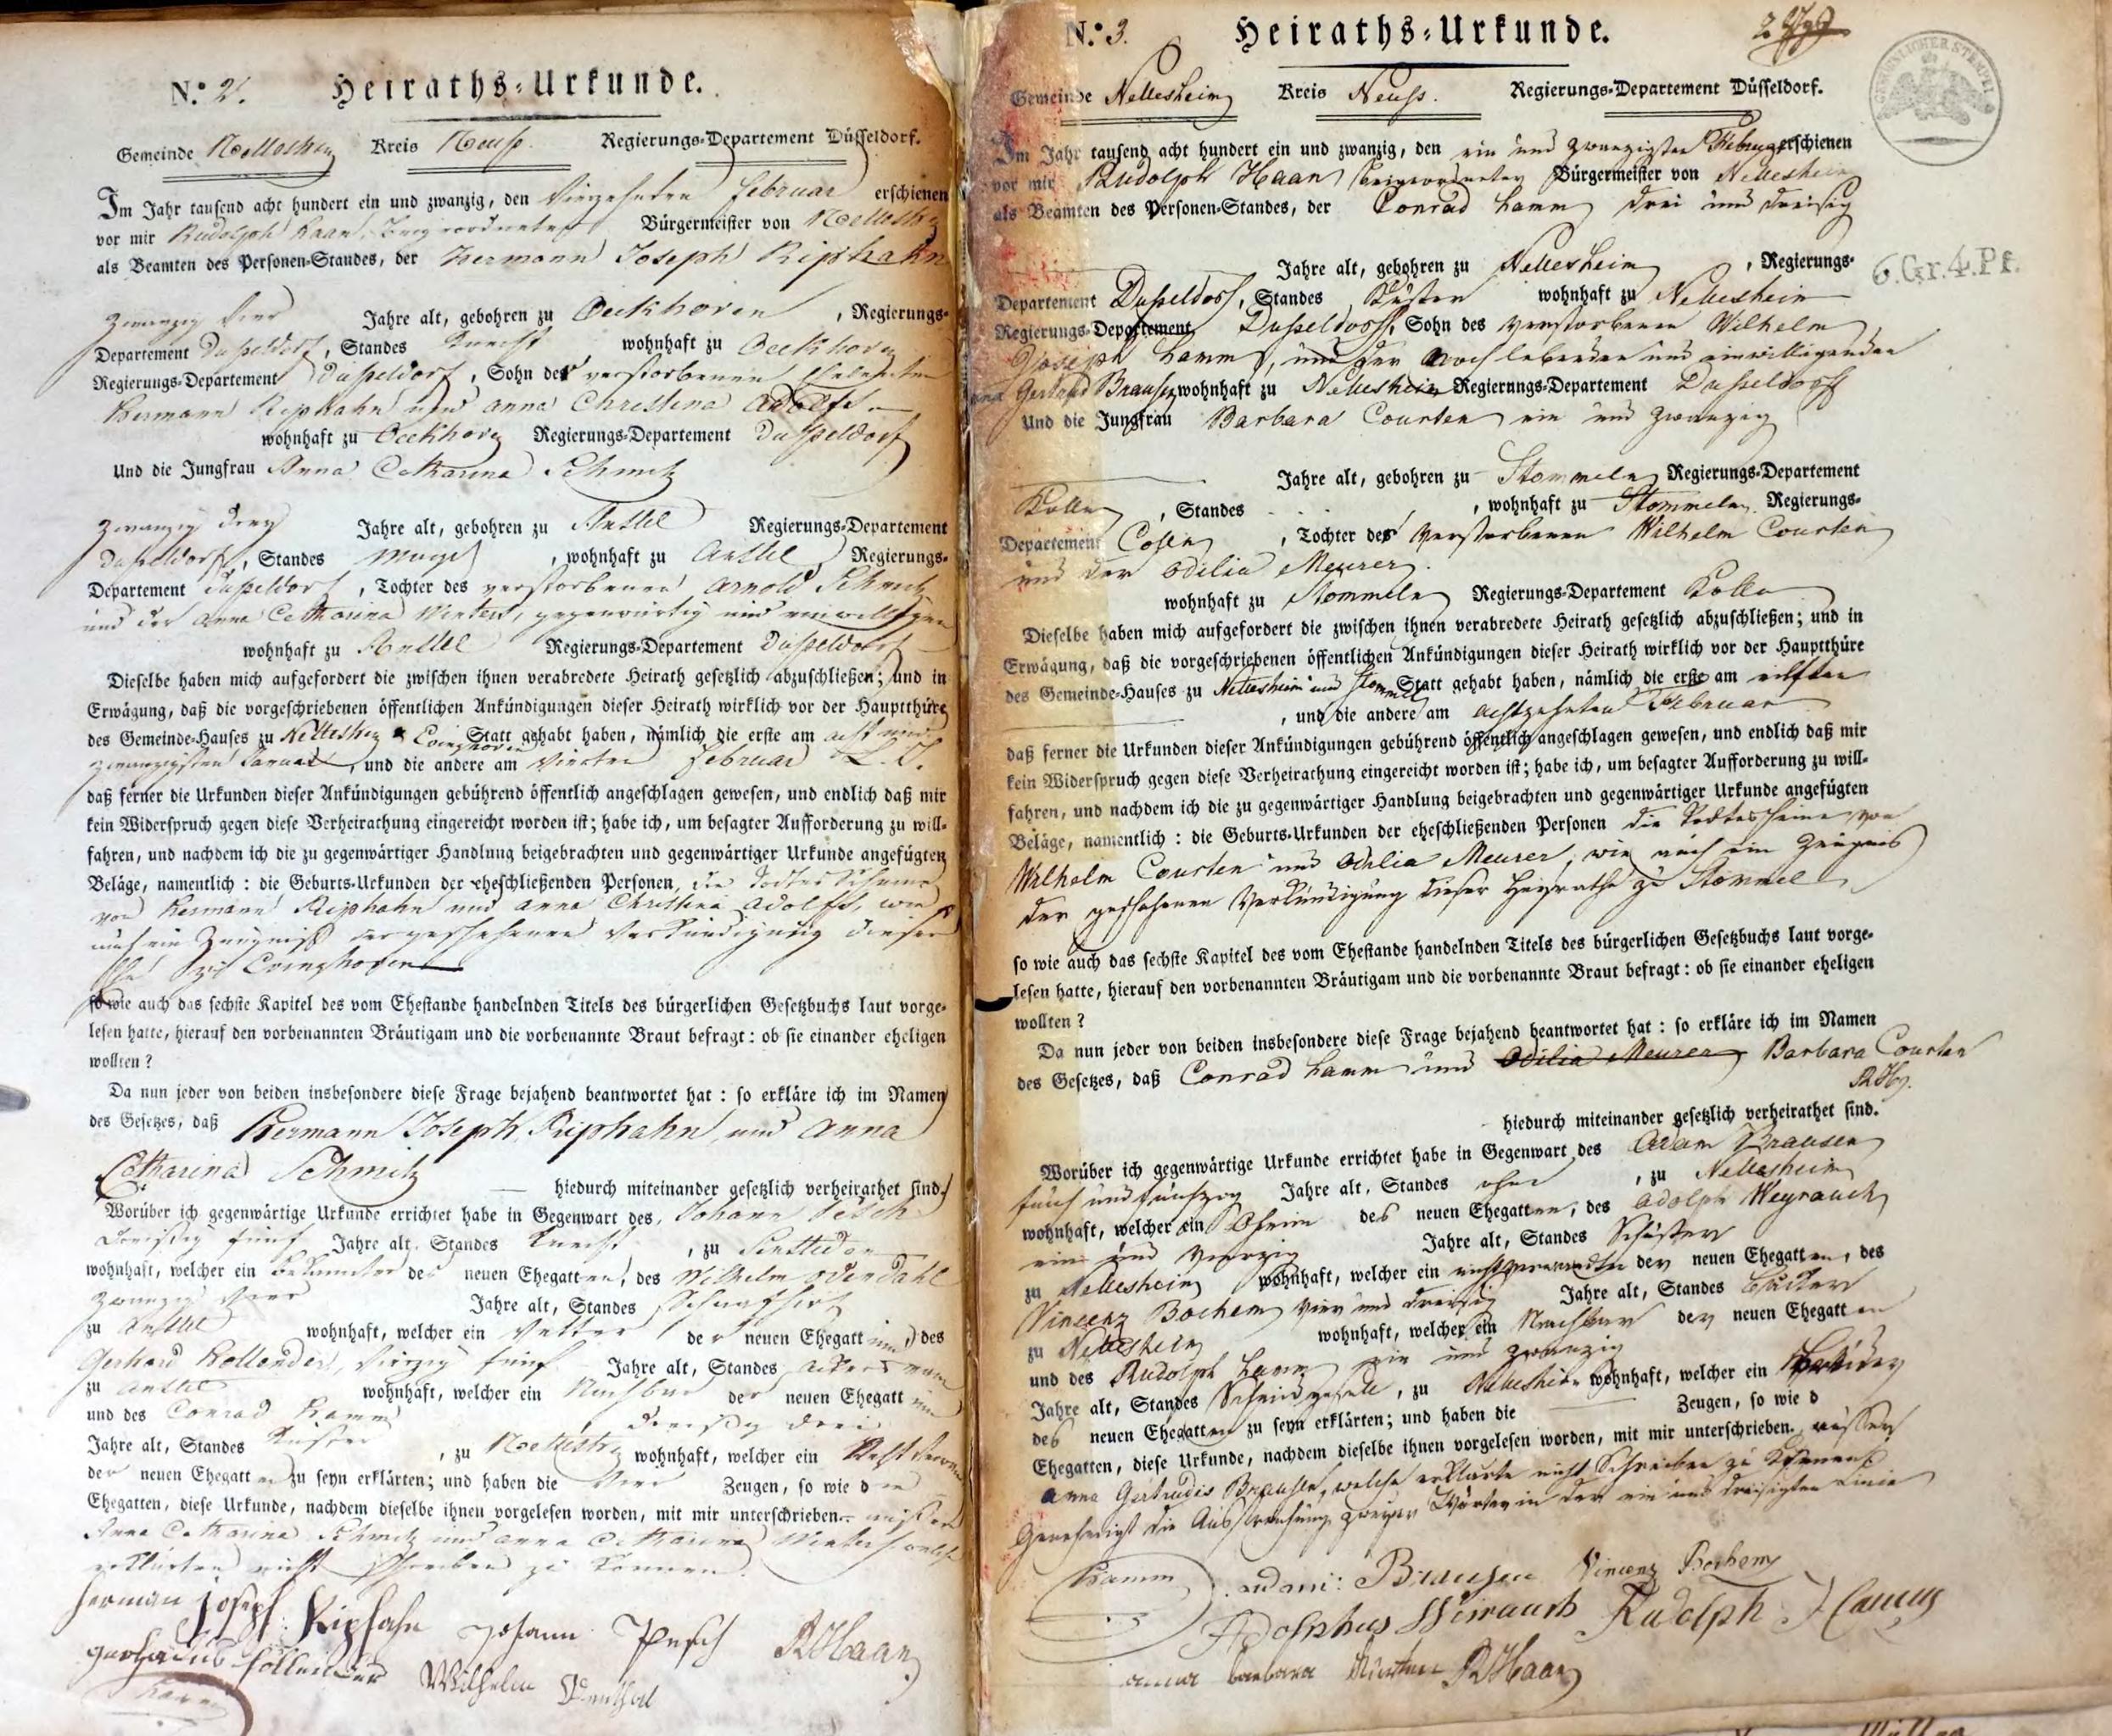 N.º 2. Heiraths-Urkunde.
Gemeinde Nettesheim Kreis Neuss. Regierungs-Departement Düsseldorf.
Im Jahr tausend acht hundert ein und zwanzig, den Vierzehnten februar erschienen
vor mir Rudolph Haan, Beigeordneter Bürgermeister von
als Beamten des Personen-Standes, der Hermann Joseph Riphahn
zwanzig Jahre alt, gebohren zu Oekhoven, Regierungs-
Departement Dusseldorf, Standes Knecht wohnhaft zu Oekhoven
Regierungs-Departement Dusseldorf, Sohn der verstorbenen Eheleuten
Hermann Riphahn und Anna Christina Adolfs
wohnhaft zu Oekhoven Regierungs-Departement Dusseldorf
Und die Jungfrau Anna Catharina Schmitz
zwanzig drey Jahre alt, gebohren zu Anstel Regierungs-Departement
Dusseldorf, Standes Magd, wohnhaft zu Anstel, Regierungs-
Departement Dusseldorf, Tochter des verstorbenen Arnold Schmitz
und der Anna Catharina Winters, gegenwärtig und einwilligend
wohnhaft zu Anstel Regierungs-Departement Dusseldorf
Dieselbe haben mich aufgefordert die zwischen ihnen verabredete Heirath gesetzlich abzuschließen; und in
Erwägung, daß die vorgeschriebenen öffentlichen Ankündigungen dieser Heirath wirklich vor der Hauptthüre
des Gemeinde-Hauses zu Statt gehabt haben, nämlich die erste am acht und
zwanzigsten Januar, und die andere am vierten februar
daß ferner die Urkunden dieser Ankündigungen gebührend öffentlich angeschlagen gewesen, und endlich daß mir
kein Widerspruch gegen diese Verheirathung eingereicht worden ist; habe ich, um besagter Aufforderung zu will-
fahren, und nachdem ich die zu gegenwärtiger Handlung beigebrachten und gegenwärtiger Urkunde angefügten
Beläge, namentlich: die Geburts-Urkunden der eheschließenden Personen, die Todtes Scheine
von Hermann Riphahn und Anna Christina Adolfs, wie
auch ein Zeugniß der geschehenen Verkündigung dieser
Ehe zu Evinghoven
so wie auch das sechste Kapitel des vom Ehestande handelnden Titels des bürgerlichen Gesetzbuchs laut vorge-
lesen hatte, hierauf den vorbenannten Bräutigam und die vorbenannte Braut befragt: ob sie einander ehelichen
wollten?
Da nun jeder von beiden insbesondere diese Frage bejahend beantwortet hat: so erkläre ich im Namen
des Gesetzes, daß Hermann Joseph Riphahn und Anna
Catharina Schmitz hiedurch miteinander gesetzlich verheirathet sind.
Worüber ich gegenwärtige Urkunde errichtet habe in Gegenwart des Johann Pesch
Dreisig fünf Jahre alt, Standes Knecht, zu
wohnhaft, welcher ein Bekannter des neuen Ehegatten, des Wilhelm Odendahl
zwanzig Jahre alt, Standes
zu Anstel wohnhaft, welcher ein Vetter der neuen Ehegattinn, des
Gerhard Hollender, Vierzig fünf Jahre alt, Standes Ackersmann
zu Anstel wohnhaft, welcher ein Nachbar der neuen Ehegattin
und des Conrad Hamm dreisig drei
Jahre alt, Standes Küster, zu wohnhaft, welcher ein
der neuen Ehegatten zu seyn erklärten; und haben die vier Zeugen, so wie die
Ehegatten, diese Urkunde, nachdem dieselbe ihnen vorgelesen worden, mit mir unterschrieben. außer
Anna Catharina Schmitz und Anna Catharina Winters welche
erklärten nicht schreiben zu können.
Herman joseph Riphahn Johann Pesch RHaan
gerhardus hollender Wilhelm
Hamm
N.º 3. Heiraths-Urkunde.
6.Gr.4.Pf.
Gemeinde Nettesheim Kreis Neuss. Regierungs-Departement Düsseldorf.
Im Jahr tausend acht hundert ein und zwanzig, den ein und zwanzigsten Februar erschienen
vor mir Rudolph Haan, Beigeordneter Bürgermeister von Nettesheim
als Beamten des Personen-Standes, der Conrad Hamm drei und dreisig
Jahre alt, gebohren zu Nettesheim, Regierungs-
Departement Dusseldorf, Standes Küster wohnhaft zu Nettesheim
Regierungs-Departement Dusseldorf, Sohn des verstorbenen Wilhelm
Joseph Hamm, und der noch lebenden und einwilligenden
Anna Gertrud Brausen wohnhaft zu Nettesheim Regierungs-Departement Dusseldorf
Und die Jungfrau Barbara Courten ein und zwanzig
Jahre alt, gebohren zu Stommeln Regierungs-Departement
Kölln, Standes, wohnhaft zu Stommeln, Regierungs-
Departement Cöln, Tochter des verstorbenen Wilhelm Courten
und der Odilia Meurer.
wohnhaft zu Stommeln Regierungs-Departement Kölln
Dieselbe haben mich aufgefordert die zwischen ihnen verabredete Heirath gesetzlich abzuschließen; und in
Erwägung, daß die vorgeschriebenen öffentlichen Ankündigungen dieser Heirath wirklich vor der Hauptthüre
des Gemeinde-Hauses zu Nettesheim und Stommeln Statt gehabt haben, nämlich die erste am eilften
, und die andere am achtzehnten Februar
daß ferner die Urkunden dieser Ankündigungen gebührend öffentlich angeschlagen gewesen, und endlich daß mir
kein Widerspruch gegen diese Verheirathung eingereicht worden ist; habe ich, um besagter Aufforderung zu will-
fahren, und nachdem ich die zu gegenwärtiger Handlung beigebrachten und gegenwärtiger Urkunde angefügten
Beläge, namentlich: die Geburts-Urkunden der eheschließenden Personen die Todtesscheine von
Wilhelm Courten und Odilia Meurer, wie auch ein Zeugnis
der geschehenen Verkündigung dieser Heyrathe zu Stommeln
so wie auch das sechste Kapitel des vom Ehestande handelnden Titels des bürgerlichen Gesetzbuchs laut vorge-
lesen hatte, hierauf den vorbenannten Bräutigam und die vorbenannte Braut befragt: ob sie einander eheligen
wollten?
Da nun jeder von beiden insbesondere diese Frage bejahend beantwortet hat: so erkläre ich im Namen
des Gesetzes, daß Conrad Hamm und Odilia Meurer Barbara Courten
hiedurch miteinander gesetzlich verheirathet sind.
Worüber ich gegenwärtige Urkunde errichtet habe in Gegenwart des Adam Brausen
fünf und fünfzig Jahre alt, Standes ohne, zu Nettesheim
wohnhaft, welcher ein Oheim des neuen Ehegatten, des Adolph Weyrauch
ein und vierzig Jahre alt, Standes Schuster
zu Nettesheim wohnhaft, welcher ein nichtverwandter der neuen Ehegatten, des
Vincenz Bochem vier und dreisig Jahre alt, Standes
zu Nettesheim wohnhaft, welcher ein Nachbar der neuen Ehegatten
und des Rudolph Hamm ein und zwanzig
Jahre alt, Standes, zu Nettesheim wohnhaft, welcher ein Bruder
des neuen Ehegatten zu seyn erklärten; und haben die Zeugen, so wie d
Ehegatten, diese Urkunde, nachdem dieselbe ihnen vorgelesen worden, mit mir unterschrieben. ausser
Anna Gertrudis Brausen, welche erklärte nicht Schreiben zu können
Genehmigt die Ausstreichung zweyer Wörter in der ein und dreisigsten Linie
Hamm adam: Brausen Vincenz Bochem
Adolphus Weirauch Rudolph Hamm
anna barbara RHaan